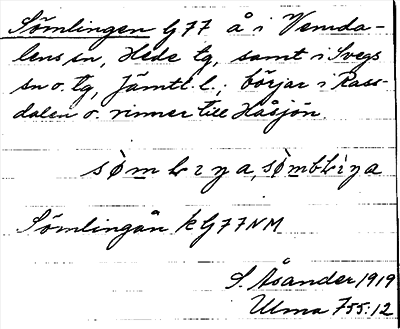 Sömlingen G77 å i Vemda-
lens sn, Hede tg, samt i Svegs
sn o. tg, Jämtl. l.; börjar i Rass-
dalen o. rinner till Håsjön.
Sömlingån k G77NM
S. Åsander 1919
Ulma 755:12